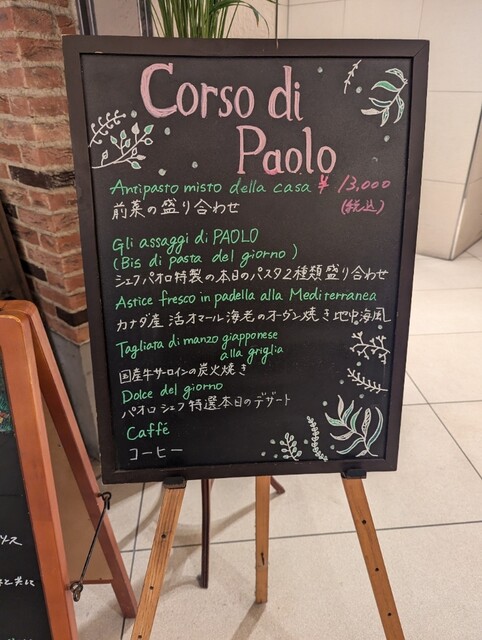 Corso di
Paolo
Antipasto misto della casa ¥ 13,000
前菜の盛り合わせ (税込)
Gli assaggi di PAOLO
(Bis di pasta del giorno)
シェフパオロ特製の本日のパスタ2種類盛り合わせ
Astice fresco in padella alla Mediterranea
カナダ産 活オマール海老のオーブン焼き地中海風
Tagliata di manzo giapponese
alla griglia
国産牛サーロインの炭火焼き
Dolce del giorno
パオロシェフ特選本日のデザート
Caffé
コーヒー